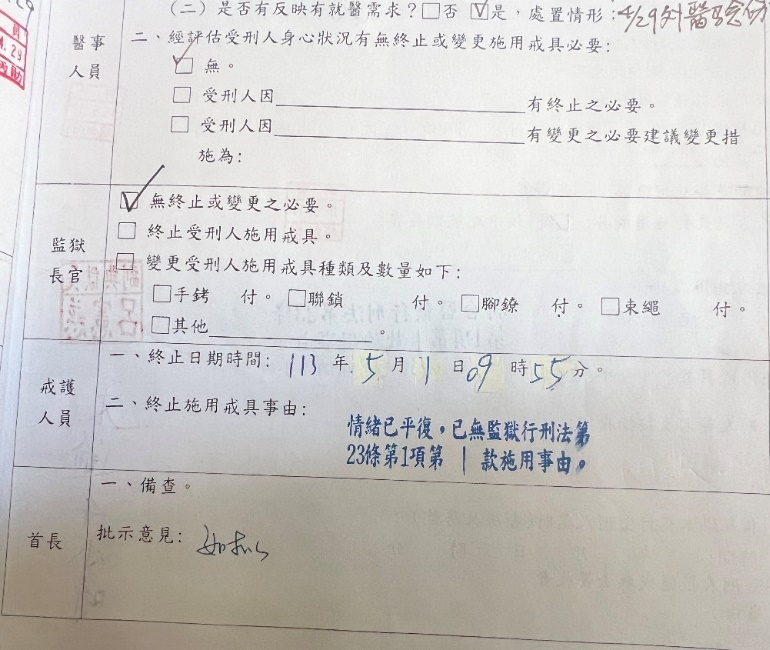 (二)是否有反映有就醫需求？□否 ☑是，處置情形：4/29外醫
醫事人員
二、經評估受刑人身心狀況有無終止或變更施用戒具必要：
☑ 無。
□ 受刑人因____________________有終止之必要。
□ 受刑人因____________________有變更之必要建議變更措
施為：
監獄長官
☑ 無終止或變更之必要。
□ 終止受刑人施用戒具。
□ 變更受刑人施用戒具種類及數量如下：
□手銬 付。□聯鎖 付。□腳鐐 付。□束繩 付。
□其他____________________。
戒護人員
一、終止日期時間：113年5月1日09時55分。
二、終止施用戒具事由：
情緒已平復，已無監獄行刑法第
23條第1項第 1 款施用事由。
首長
一、備查。
批示意見：如擬